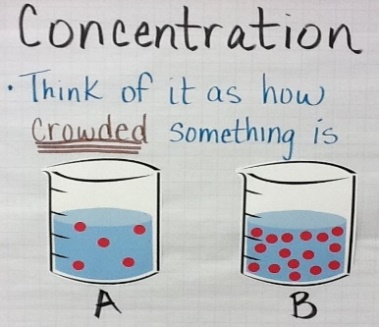 Concentration
· Think of it as how
crowded something is
A B